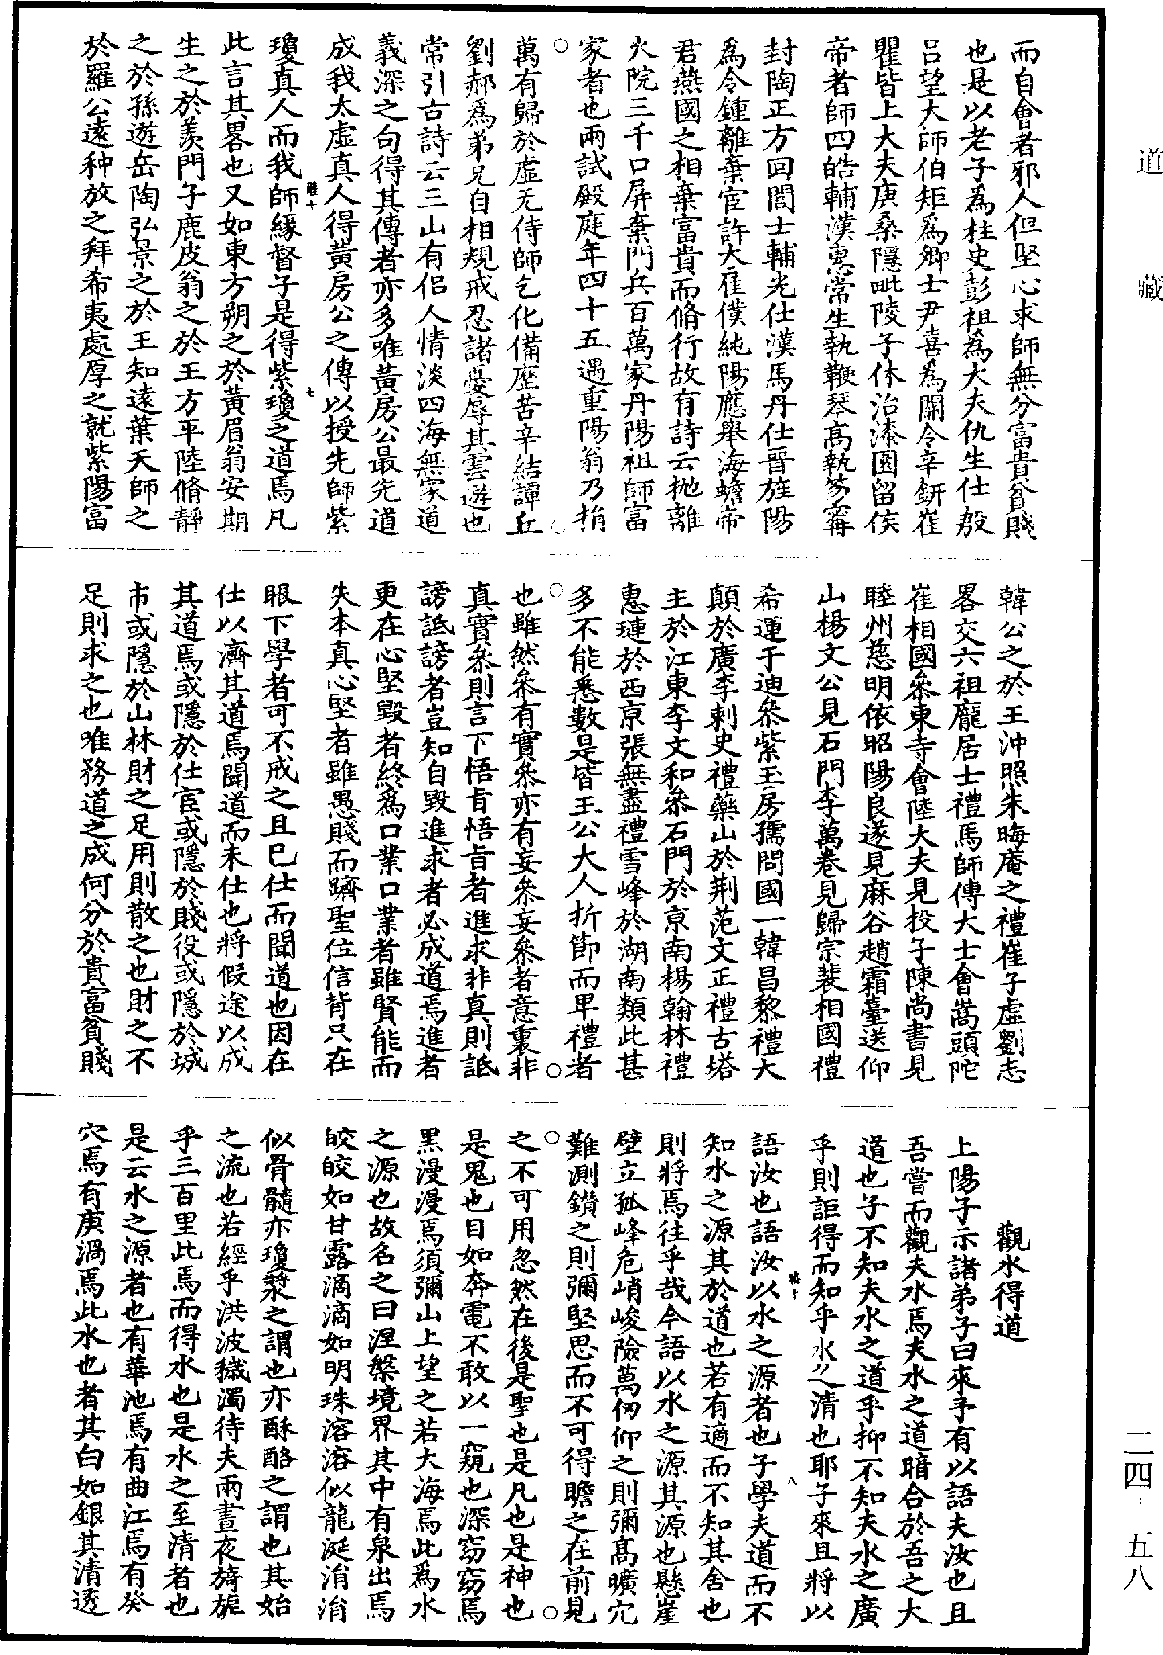 道藏
而自會者邪人但堅心求師無分富貴貧賤
也是以老子為柱史彭祖為大夫仇生仕殷
呂望大師伯矩為卿士尹喜為關令辛鈃崔
瞿皆上大夫庚桑隱毗陵子休治漆園留侯
帝者師四皓輔漢寬常生執鞭琴高執笏霄
封陶正方回閭士輔光仕漢馬丹仕晉旌陽
為令鍾離棄宦許大雇僕純陽應舉海蟾帝
君燕國之相棄富貴而脩行故有詩云拋離
火院三千口屏棄門兵百萬家丹陽祖師富
家者也兩試殿庭年四十五遇重陽翁乃捐
萬有歸於虛无侍師乞化備歷苦辛結譚丘
劉郝為弟兄自相規戒忍諸憂辱其雲遊也
常引古詩云三山有侶人情淡四海無家道
義深之句得其傳者亦多唯黃房公最先道
成我太虛真人得黃房公之傳以授先師紫
瓊真人而我師緣督子是得紫瓊之道焉凡
此言其畧也又如東方朔之於黃眉翁安期
生之於羨門子鹿皮翁之於王方平陸脩靜
之於孫遊岳陶弘景之於王知遠葉天師之
於羅公遠种放之拜希夷處厚之就紫陽富
韓公之於王沖照朱晦庵之禮崔子虛劉志
畧交六祖龐居士禮馬師傳大士會嵩頭陀
崔相國參東寺會陸大夫見投子陳尚書見
睦州慈明依昭陽良遂見麻谷趙霜臺送仰
山楊文公見石門李萬卷見歸宗裴相國禮
希運于迪參紫玉房孺問國一韓昌黎禮大
顛於廣李刺史禮藥山於荆范文正禮古塔
主於江東李文和參石門於京南楊翰林禮
惠璉於西京張無盡禮雪峰於湖南類此甚
多不能悉數是皆王公大人折節而卑禮者
也雖然參有實參亦有妄參妄參者意裏非
真實參則言下悟旨悟旨者進求非真則詆
謗詆謗者豈知自毀進求者必成道焉進者
更在心堅毀者終為口業口業者雖賢能而
失本真心堅者雖愚賤而躋聖位信背只在
眼下學者可不戒之且巳仕而聞道也因在
仕以濟其道焉聞道而未仕也將假途以成
其道焉或隱於仕宦或隱於賤役或隱於城
市或隱於山林財之足用則散之也財之不
足則求之也唯務道之成何分於貴富貧賤
觀水得道
上陽子示諸弟子曰來予有以語夫汝也且
吾嘗而觀夫水焉夫水之道暗合於吾之大
道也子不知夫水之道乎抑不知夫水之廣
乎則詎得而知乎水之清也耶子來且將以
語汝也語汝以水之源者也子學夫道而不
知水之源其於道也若有適而不知其舍也
則將焉往乎哉今語以水之源其源也懸崖
壁立孤峰危峭峻險萬仞仰之則彌高曠穴
難測鑽之則彌堅思而不可得瞻之在前見
之不可用忽然在後是聖也是凡也是神也
是鬼也目如奔電不敢以一窺也深窈窈焉
黑漫漫焉須彌山上望之若大海焉此為水
之源也故名之曰涅槃境界其中有泉出焉
皎皎如甘露滴滴如明珠溶溶似龍涎涓涓
似骨髓亦瓊漿之謂也亦酥酪之謂也其始
之流也若經乎洪波穢濁待夫兩晝夜旖旎
乎三百里此焉而得水也是水之至清者也
是云水之源者也有華池焉有曲江焉有癸
穴焉有庚渦焉此水也者其白如銀其清透
二四·五八